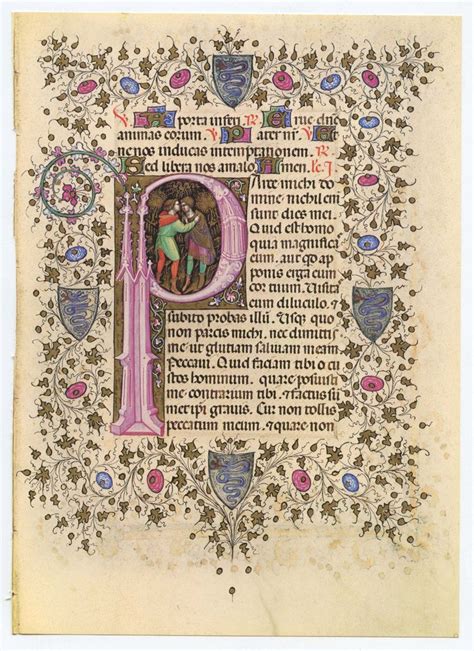 V A porta inferi R E rue dne
animas eorum. V P ater nr. V Et
ne nos inducas intemptationem. R
Sed libera nos amalo A men. lc. j.
Parce michi do
mine nichil eni
sunt dies mei.
Quid est homo
quia magnificas
eum. aut qd ap
ponis erga eum
cor tuum. Visitas
eum diluculo. &
subito probas illu. Usq; quo
non parcis michi. nec dimittis
me ut glutiam salivam meam.
Peccavi. Quid faciam tibi o cu
stos hominum. quare posuisti
me contrarium tibi. & factus su
met ipi gravis. Cur non tollis
peccatum meum. & quare non